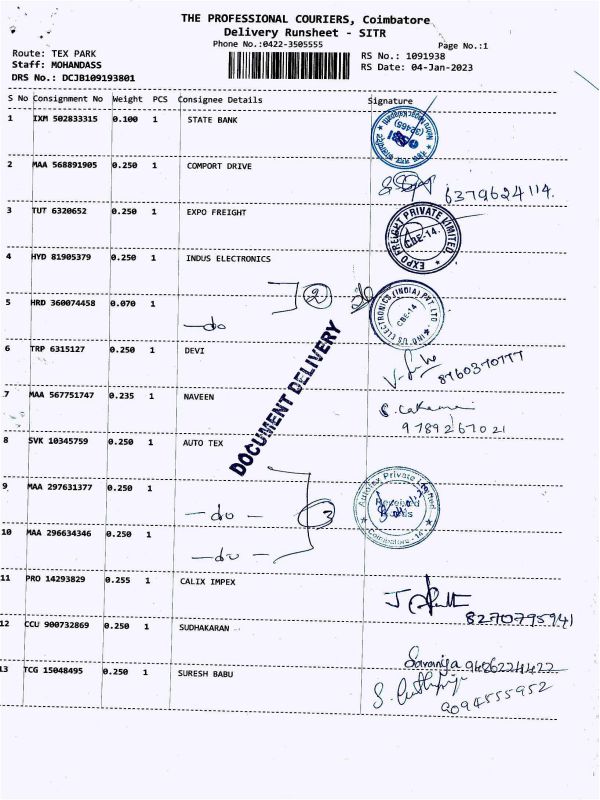 THE PROFESSIONAL COURIERS, Coimbatore
Delivery Runsheet - SITR
Phone No.:0422-3505555
Page No.:1
Route: TEX PARK
Staff: MOHANDASS
DRS No.: DCJB109193801
RS No.: 1091938
RS Date: 04-Jan-2023
S No Consignment No Weight PCS Consignee Details Signature
1 IXM 502833315 0.100 1 STATE BANK
2 MAA 568891905 0.250 1 COMPORT DRIVE
6379624114.
3 TUT 6320652 0.250 1 EXPO FREIGHT
EXPO FREIGHT PRIVATE LIMITED
CBE-14.
4 HYD 81905379 0.250 1 INDUS ELECTRONICS
2
5 HRD 360074458 0.070 1
- do
CBE-14
6 TRP 6315127 0.250 1 DEVI
8760370777
DOCUMENT DELIVERY
7 MAA 567751747 0.235 1 NAVEEN
9789267021
8 SVK 10345759 0.250 1 AUTO TEX
9 MAA 297631377 0.250 1
- do -
3
Autotex Private Limited
Coimbatore - 14
10 MAA 296634346 0.250 1
- do -
11 PRO 14293829 0.255 1 CALIX IMPEX
8270795941
12 CCU 900732869 0.250 1 SUDHAKARAN
Saranya 9486224422
13 TCG 15048495 0.250 1 SURESH BABU
9094555952